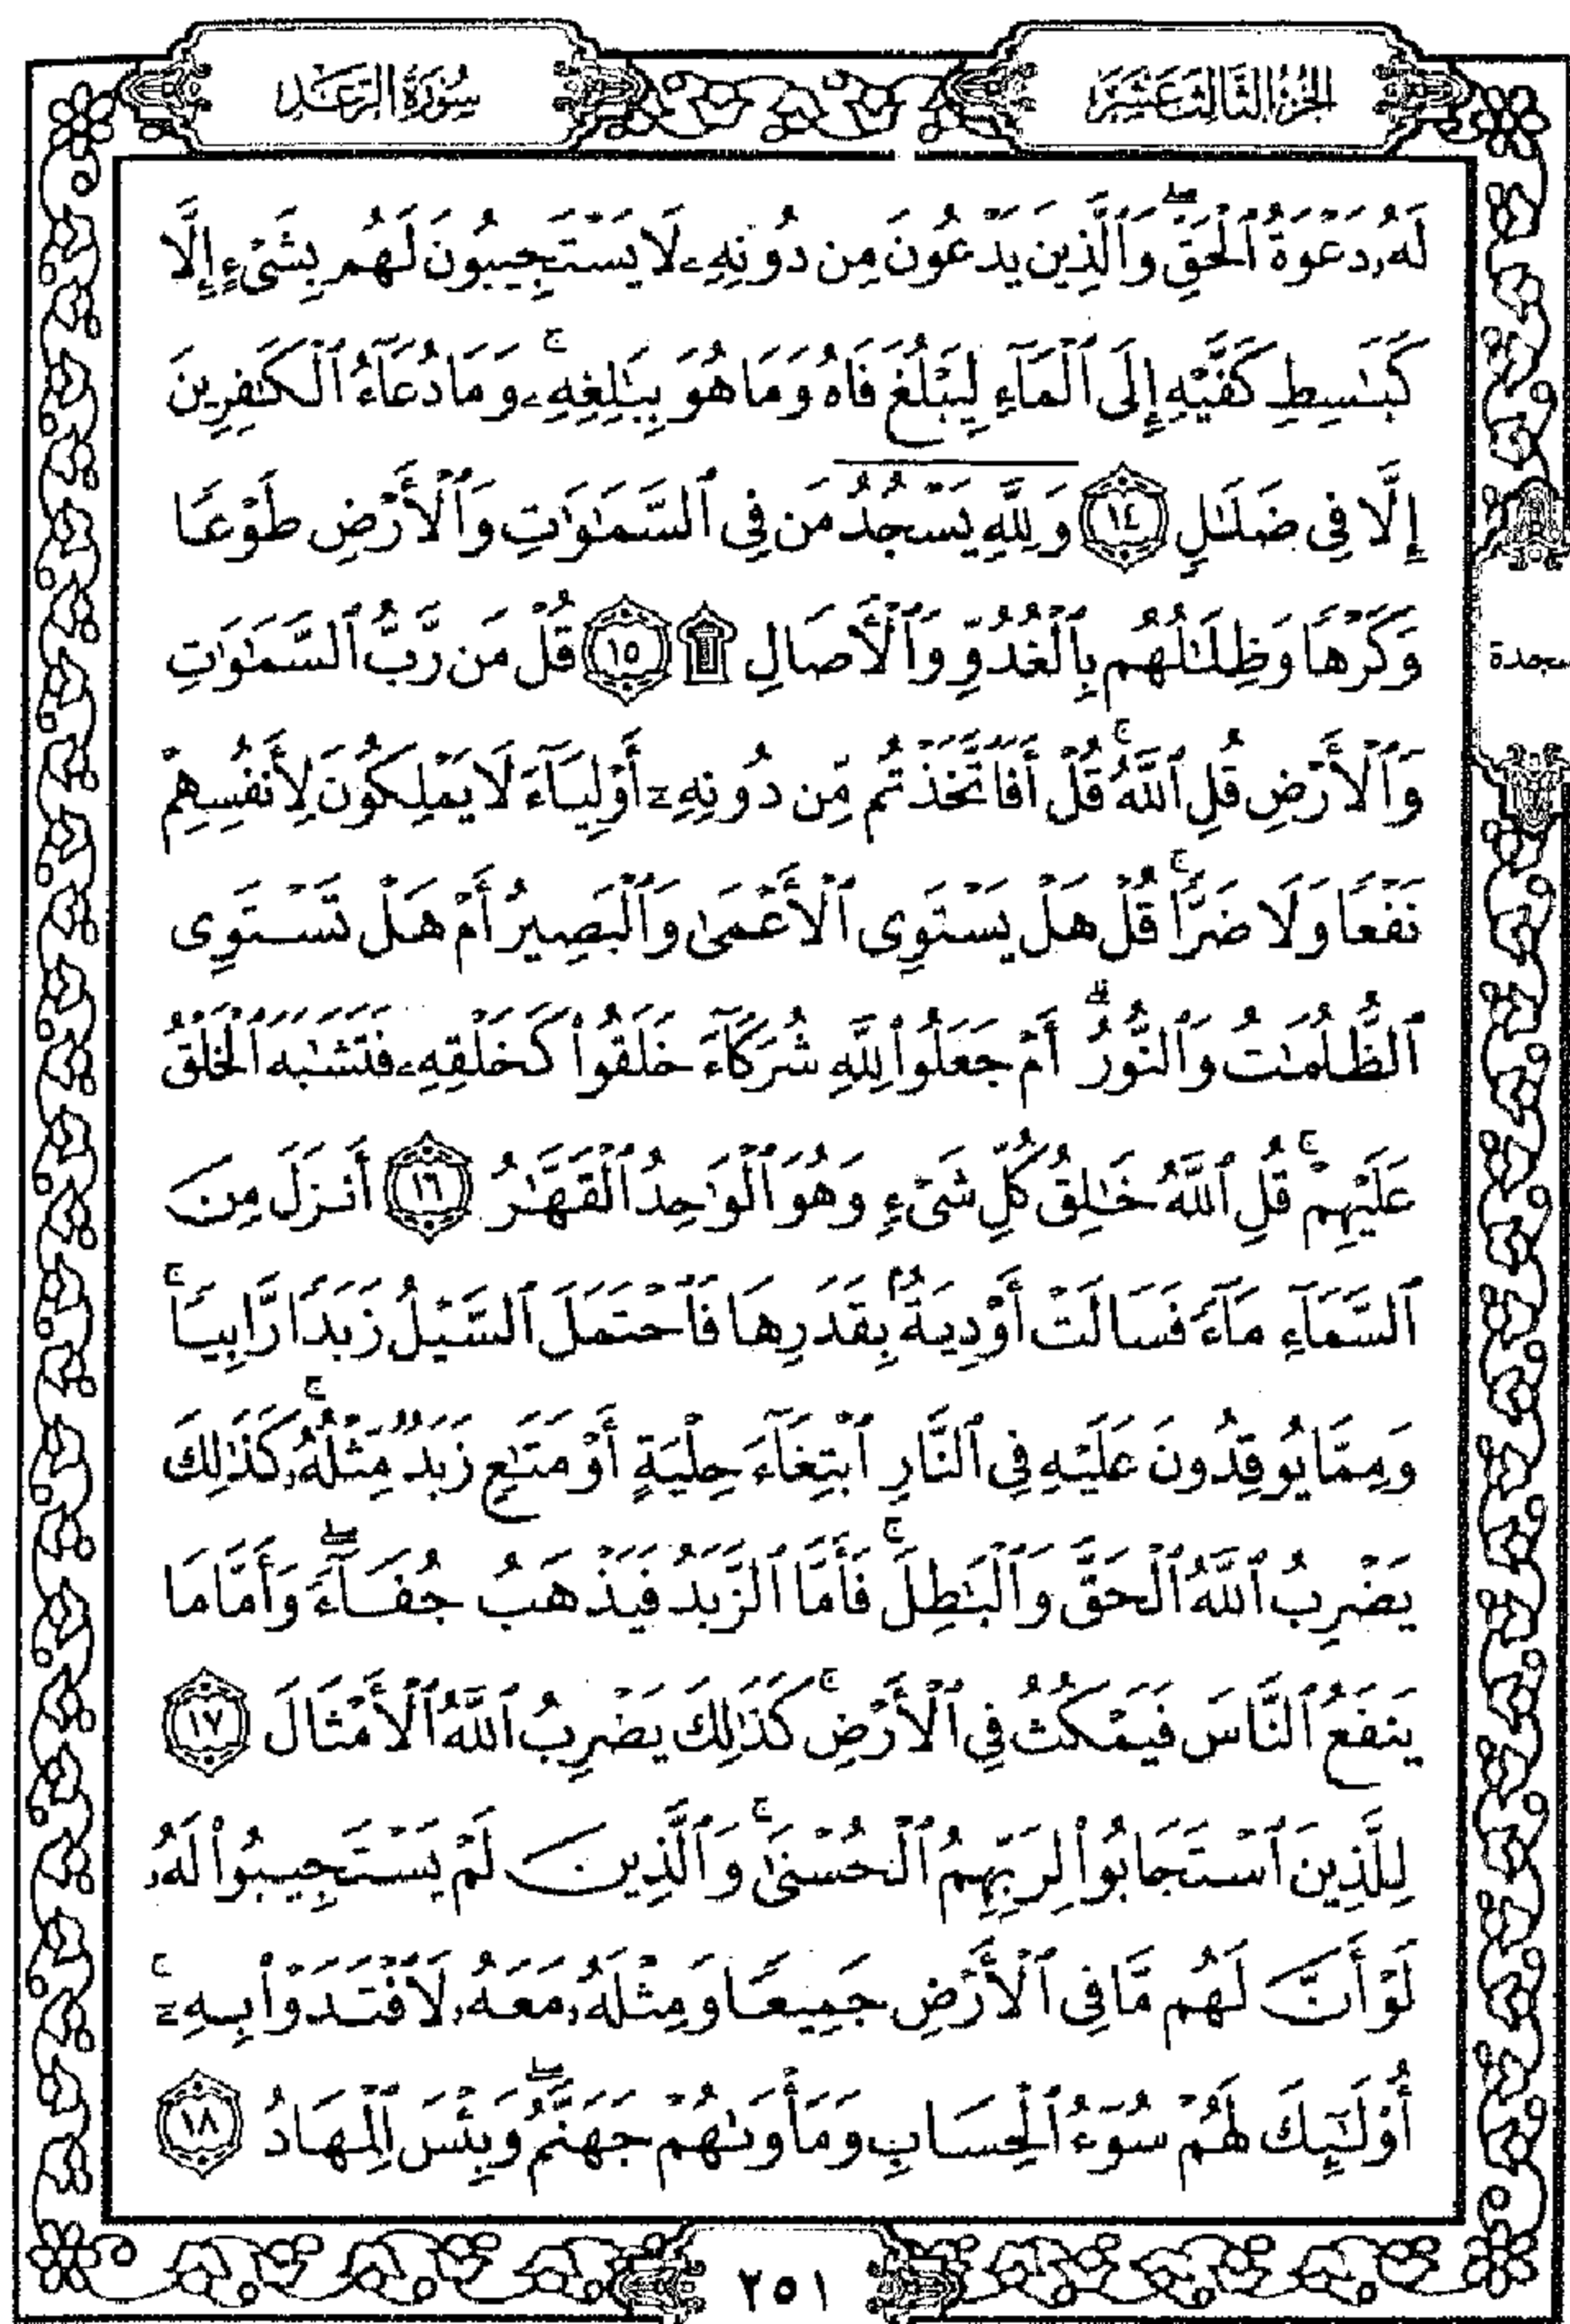 الجزء الثالث عشر
سورة الرعد
لَهُۥ دَعْوَةُ ٱلْحَقِّ ۖ وَٱلَّذِينَ يَدْعُونَ مِن دُونِهِۦ لَا يَسْتَجِيبُونَ لَهُم بِشَىْءٍ إِلَّا
كَبَٰسِطِ كَفَّيْهِ إِلَى ٱلْمَآءِ لِيَبْلُغَ فَاهُ وَمَا هُوَ بِبَٰلِغِهِۦ ۚ وَمَا دُعَآءُ ٱلْكَٰفِرِينَ
إِلَّا فِى ضَلَٰلٍ ١٤ وَلِلَّهِ يَسْجُدُ مَن فِى ٱلسَّمَٰوَٰتِ وَٱلْأَرْضِ طَوْعًا
وَكَرْهًا وَظِلَٰلُهُم بِٱلْغُدُوِّ وَٱلْأَصَالِ ۩ ١٥ قُلْ مَن رَّبُّ ٱلسَّمَٰوَٰتِ
سجدة
وَٱلْأَرْضِ قُلِ ٱللَّهُ ۚ قُلْ أَفَٱتَّخَذْتُم مِّن دُونِهِۦٓ أَوْلِيَآءَ لَا يَمْلِكُونَ لِأَنفُسِهِمْ
نَفْعًا وَلَا ضَرًّا ۚ قُلْ هَلْ يَسْتَوِى ٱلْأَعْمَىٰ وَٱلْبَصِيرُ أَمْ هَلْ تَسْتَوِى
ٱلظُّلُمَٰتُ وَٱلنُّورُ ۗ أَمْ جَعَلُوا۟ لِلَّهِ شُرَكَآءَ خَلَقُوا۟ كَخَلْقِهِۦ فَتَشَٰبَهَ ٱلْخَلْقُ
عَلَيْهِمْ ۚ قُلِ ٱللَّهُ خَٰلِقُ كُلِّ شَىْءٍ وَهُوَ ٱلْوَٰحِدُ ٱلْقَهَّٰرُ ١٦ أَنزَلَ مِنَ
ٱلسَّمَآءِ مَآءً فَسَالَتْ أَوْدِيَةٌۢ بِقَدَرِهَا فَٱحْتَمَلَ ٱلسَّيْلُ زَبَدًا رَّابِيًا ۚ
وَمِمَّا يُوقِدُونَ عَلَيْهِ فِى ٱلنَّارِ ٱبْتِغَآءَ حِلْيَةٍ أَوْ مَتَٰعٍ زَبَدٌ مِّثْلُهُۥ ۚ كَذَٰلِكَ
يَضْرِبُ ٱللَّهُ ٱلْحَقَّ وَٱلْبَٰطِلَ ۚ فَأَمَّا ٱلزَّبَدُ فَيَذْهَبُ جُفَآءً ۖ وَأَمَّا مَا
يَنفَعُ ٱلنَّاسَ فَيَمْكُثُ فِى ٱلْأَرْضِ ۚ كَذَٰلِكَ يَضْرِبُ ٱللَّهُ ٱلْأَمْثَالَ ١٧
لِلَّذِينَ ٱسْتَجَابُوا۟ لِرَبِّهِمُ ٱلْحُسْنَىٰ ۚ وَٱلَّذِينَ لَمْ يَسْتَجِيبُوا۟ لَهُۥ
لَوْ أَنَّ لَهُم مَّا فِى ٱلْأَرْضِ جَمِيعًا وَمِثْلَهُۥ مَعَهُۥ لَٱفْتَدَوْا۟ بِهِۦٓ ۚ
أُو۟لَٰٓئِكَ لَهُمْ سُوٓءُ ٱلْحِسَابِ وَمَأْوَىٰهُمْ جَهَنَّمُ ۖ وَبِئْسَ ٱلْمِهَادُ ١٨
٢٥١